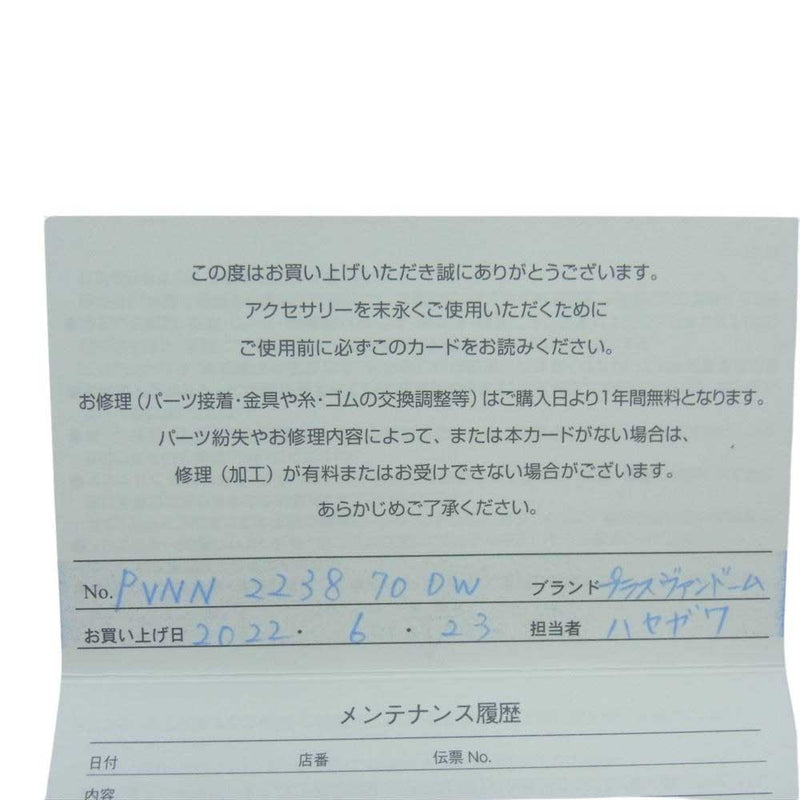 この度はお買い上げいただき誠にありがとうございます。
アクセサリーを末永くご使用いただくために
ご使用前に必ずこのカードをお読みください。
お修理（パーツ接着・金具や糸・ゴムの交換調整等）はご購入日より1年間無料となります。
パーツ紛失やお修理内容によって、または本カードがない場合は、
修理（加工）が有料またはお受けできない場合がございます。
あらかじめご了承ください。
No. PVNN 2238 70 DW ブランド プラスヴァンドーム
お買い上げ日 2022・6・23 担当者 ハセガワ
メンテナンス履歴
日付 店番 伝票 No.
内容